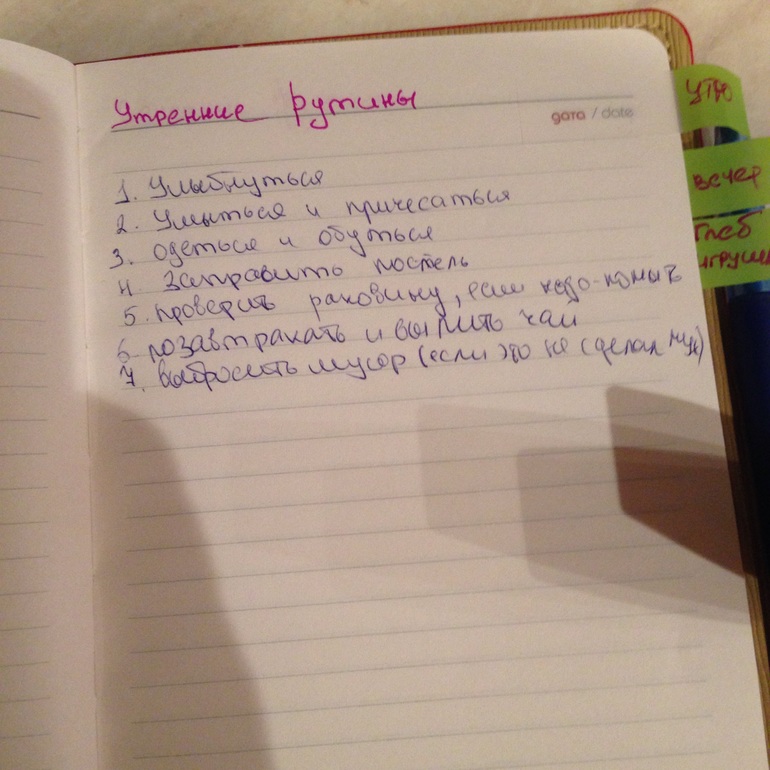 Утренние рутины
дата / date
1. Улыбнуться
2. Умыться и причесаться
3. одеться и обуться
4. Заправить постель
5. проверить раковину, если надо-помыть
6. позавтракать и выпить чай
7. выбросить мусор (если это не сделал муж)
УТРО
вечер
Глеб
игрушки